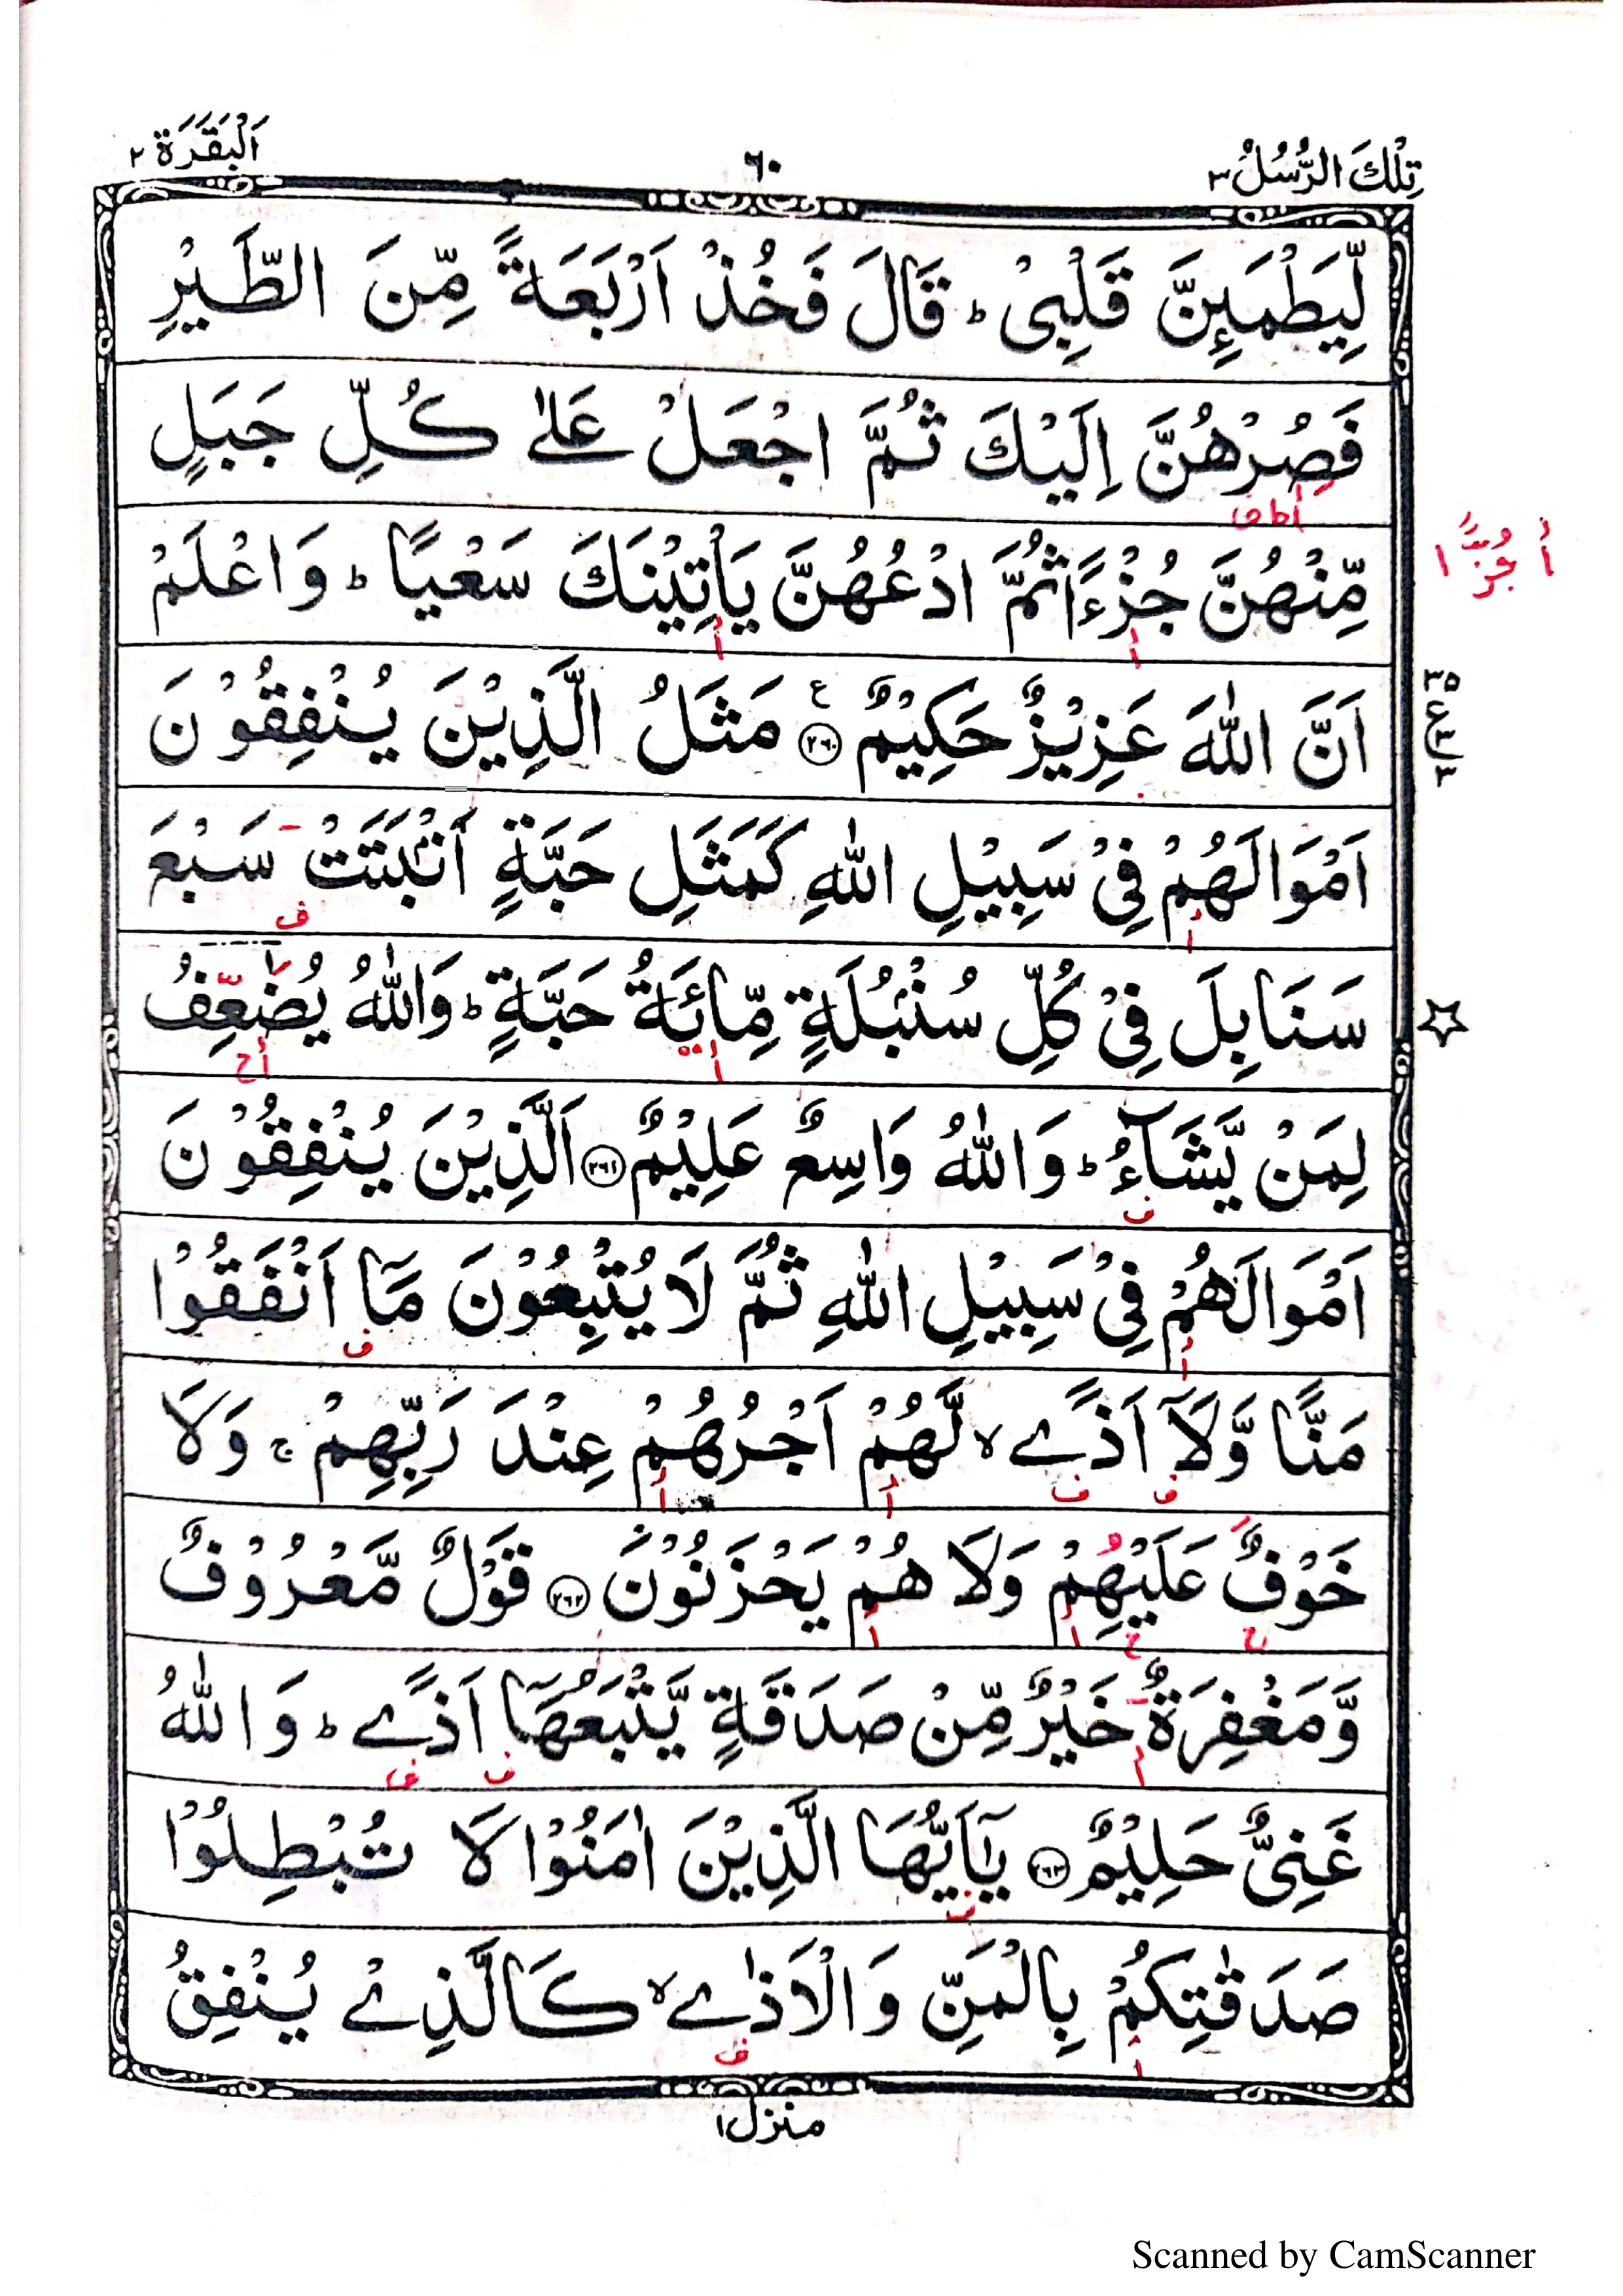 تِلْكَ الرُّسُلُ ٣
٦٠
اَلْبَقَرَة ٢
لِّيَطْمَئِنَّ قَلْبِيْ ؕ قَالَ فَخُذْ اَرْبَعَةً مِّنَ الطَّيْرِ
فَصُرْهُنَّ اِلَيْكَ ثُمَّ اجْعَلْ عَلٰى كُلِّ جَبَلٍ
مِّنْهُنَّ جُزْءًا ثُمَّ ادْعُهُنَّ يَاْتِيْنَكَ سَعْيًا ؕ وَاعْلَمْ
أ جُزًّا
اَنَّ اللّٰهَ عَزِيْزٌ حَكِيْمٌ ﴿٢٦٠﴾ ع مَثَلُ الَّذِيْنَ يُنْفِقُوْنَ
اَمْوَالَهُمْ فِيْ سَبِيْلِ اللّٰهِ كَمَثَلِ حَبَّةٍ اَنْۢبَتَتْ سَبْعَ
سَنَابِلَ فِيْ كُلِّ سُنْۢبُلَةٍ مِّائَةُ حَبَّةٍ ؕ وَاللّٰهُ يُضٰعِفُ
لِمَنْ يَّشَآءُ ؕ وَاللّٰهُ وَاسِعٌ عَلِيْمٌ ﴿٢٦١﴾ اَلَّذِيْنَ يُنْفِقُوْنَ
اَمْوَالَهُمْ فِيْ سَبِيْلِ اللّٰهِ ثُمَّ لَا يُتْبِعُوْنَ مَآ اَنْفَقُوْا
مَنًّا وَّلَآ اَذًى ۙ لَّهُمْ اَجْرُهُمْ عِنْدَ رَبِّهِمْ ۚ وَلَا
خَوْفٌ عَلَيْهِمْ وَلَا هُمْ يَحْزَنُوْنَ ﴿٢٦٢﴾ قَوْلٌ مَّعْرُوْفٌ
وَّمَغْفِرَةٌ خَيْرٌ مِّنْ صَدَقَةٍ يَّتْبَعُهَآ اَذًى ؕ وَاللّٰهُ
غَنِيٌّ حَلِيْمٌ ﴿٢٦٣﴾ يٰٓاَيُّهَا الَّذِيْنَ اٰمَنُوْا لَا تُبْطِلُوْا
صَدَقٰتِكُمْ بِالْمَنِّ وَالْاَذٰى ۙ كَالَّذِيْ يُنْفِقُ
منزل ١
Scanned by CamScanner